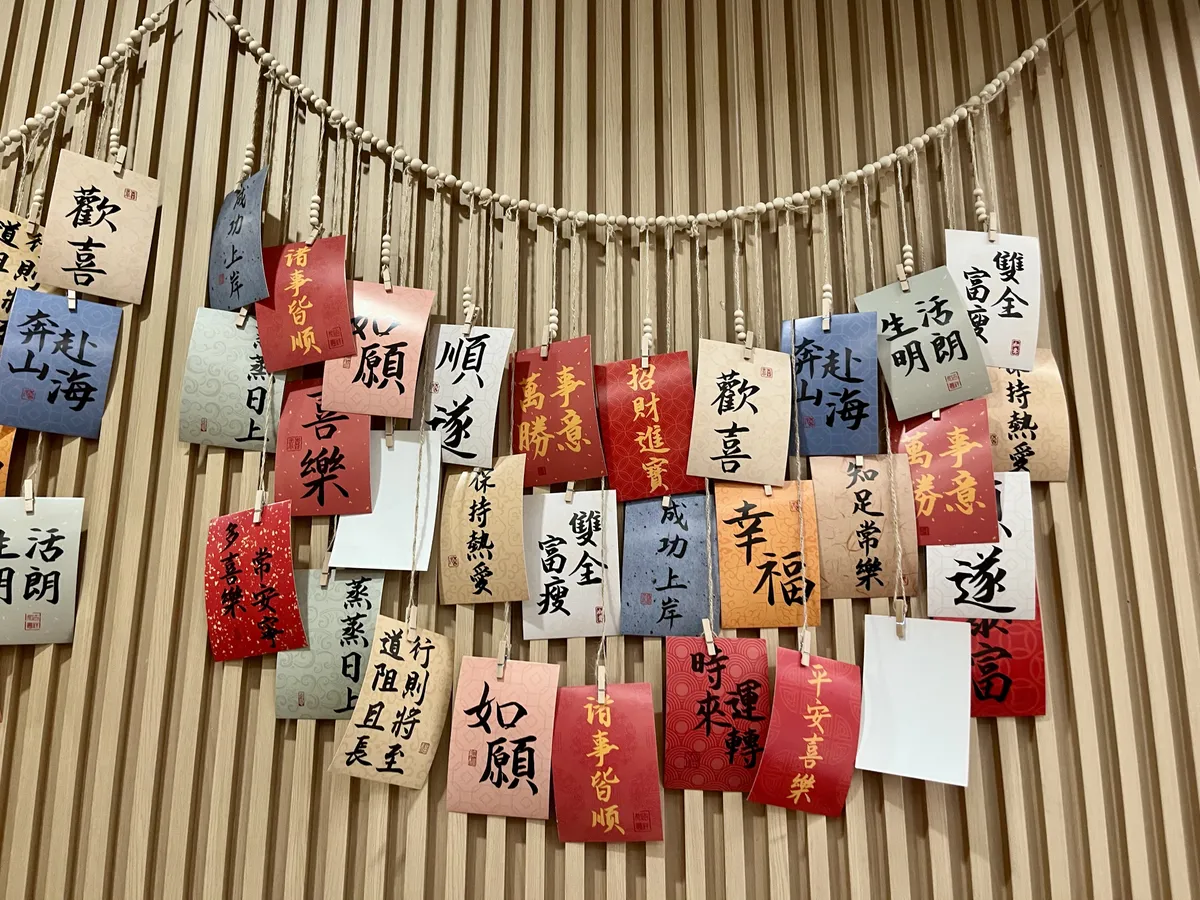 歡喜
道阻且
行則將
奔赴
山海
活
明朗
成功上岸
诸事皆顺
蒸日上
如願
喜樂
順遂
萬事
勝意
招財進寶
歡喜
奔赴
山海
生活
明朗
雙全
富瘦
保持熱愛
萬事
勝意
知足常樂
遂
富
幸福
成功上岸
雙全
富瘦
保持熱愛
多喜樂
常安寧
蒸蒸日上
道阻且長
行則將至
如願
诸事皆顺
時來
運轉
平安喜樂